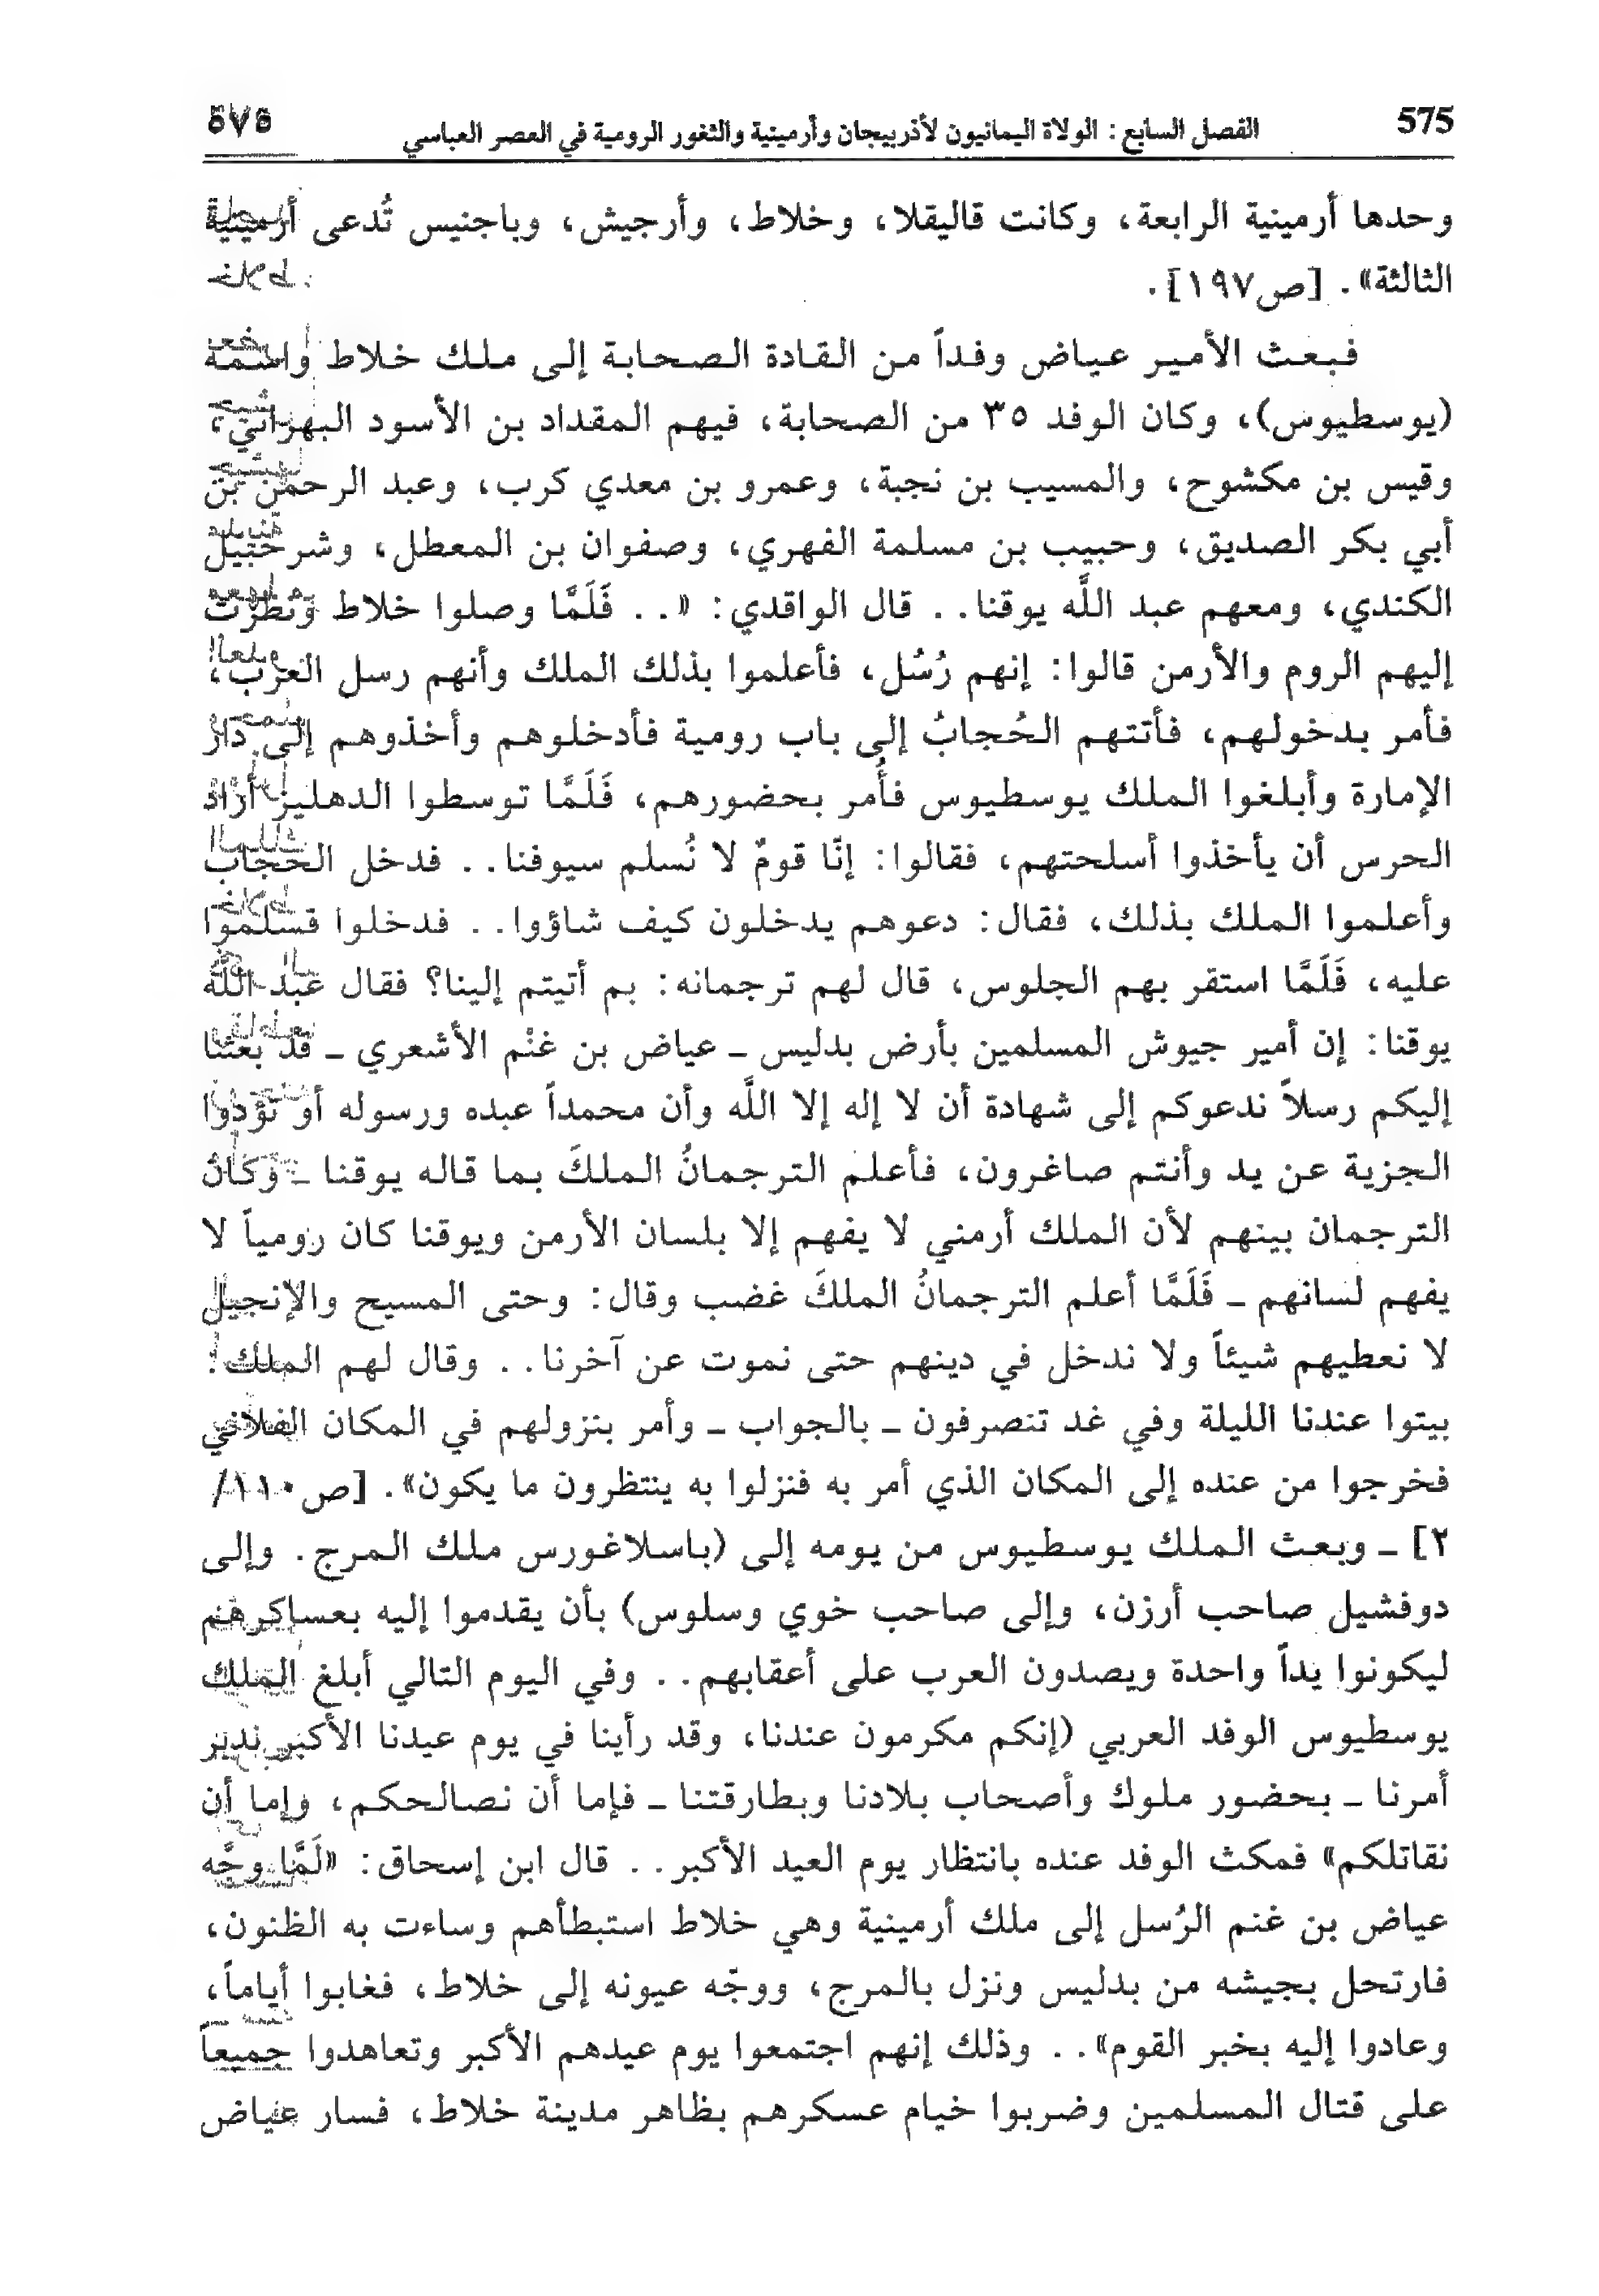 575
الفصل السابع : الولاة اليمانيون لأذربيجان وأرمينية والثغور الرومية في العصر العباسي
٥٧٥
وحدها أرمينية الرابعة، وكانت قاليقلا، وخلاط، وأرجيش، وباجنيس تُدعى أرمينية
الثالثة». [ص١٩٧].
فبعث الأمير عياض وفداً من القادة الصحابة إلى ملك خلاط واسمه
(يوسطيوس)، وكان الوفد ٣٥ من الصحابة، فيهم المقداد بن الأسود البهراني،
وقيس بن مكشوح، والمسيب بن نجبة، وعمرو بن معدي كرب، وعبد الرحمن بن
أبي بكر الصديق، وحبيب بن مسلمة الفهري، وصفوان بن المعطل، وشرحبيل
الكندي، ومعهم عبد اللَّه يوقنا.. قال الواقدي: «.. فَلَمَّا وصلوا خلاط ونظرت
إليهم الروم والأرمن قالوا: إنهم رُسُل، فأعلموا بذلك الملك وأنهم رسل العرب،
فأمر بدخولهم، فأتتهم الحُجابُ إلى باب رومية فأدخلوهم وأخذوهم إلى دار
الإمارة وأبلغوا الملك يوسطيوس فأُمر بحضورهم، فَلَمَّا توسطوا الدهليز أراد
الحرس أن يأخذوا أسلحتهم، فقالوا: إنّا قومٌ لا نُسلم سيوفنا.. فدخل الحجاب
وأعلموا الملك بذلك، فقال: دعوهم يدخلون كيف شاؤوا.. فدخلوا فسلموا
عليه، فَلَمَّا استقر بهم الجلوس، قال لهم ترجمانه: بم أتيتم إلينا؟ فقال عبد اللَّه
يوقنا: إن أمير جيوش المسلمين بأرض بدليس ـ عياض بن غنْم الأشعري ـ قد بعثنا
إليكم رسلاً ندعوكم إلى شهادة أن لا إله إلا اللَّه وأن محمداً عبده ورسوله أو تؤدوا
الجزية عن يد وأنتم صاغرون، فأعلم الترجمانُ الملكَ بما قاله يوقنا ـ وكان
الترجمان بينهم لأن الملك أرمني لا يفهم إلا بلسان الأرمن ويوقنا كان رومياً لا
يفهم لسانهم ـ فَلَمَّا أعلم الترجمانُ الملكَ غضب وقال: وحتى المسيح والإنجيل
لا نعطيهم شيئاً ولا ندخل في دينهم حتى نموت عن آخرنا.. وقال لهم الملك:
بيتوا عندنا الليلة وفي غد تنصرفون ـ بالجواب ـ وأمر بنزولهم في المكان الفلاني
فخرجوا من عنده إلى المكان الذي أمر به فنزلوا به ينتظرون ما يكون». [ص١١٠/
٢] ـ وبعث الملك يوسطيوس من يومه إلى (باسلاغورس ملك المرج. وإلى
دوفشيل صاحب أرزن، وإلى صاحب خوي وسلوس) بأن يقدموا إليه بعساكرهم
ليكونوا يداً واحدة ويصدون العرب على أعقابهم.. وفي اليوم التالي أبلغ الملك
يوسطيوس الوفد العربي (إنكم مكرمون عندنا، وقد رأينا في يوم عيدنا الأكبر ندبر
أمرنا ـ بحضور ملوك وأصحاب بلادنا وبطارقتنا ـ فإما أن نصالحكم، وإما أن
نقاتلكم» فمكث الوفد عنده بانتظار يوم العيد الأكبر.. قال ابن إسحاق: «لَمَّا وجَّه
عياض بن غنم الرُسل إلى ملك أرمينية وهي خلاط استبطأهم وساءت به الظنون،
فارتحل بجيشه من بدليس ونزل بالمرج، ووجّه عيونه إلى خلاط، فغابوا أياماً،
وعادوا إليه بخبر القوم».. وذلك إنهم اجتمعوا يوم عيدهم الأكبر وتعاهدوا جميعاً
على قتال المسلمين وضربوا خيام عسكرهم بظاهر مدينة خلاط، فسار عياض